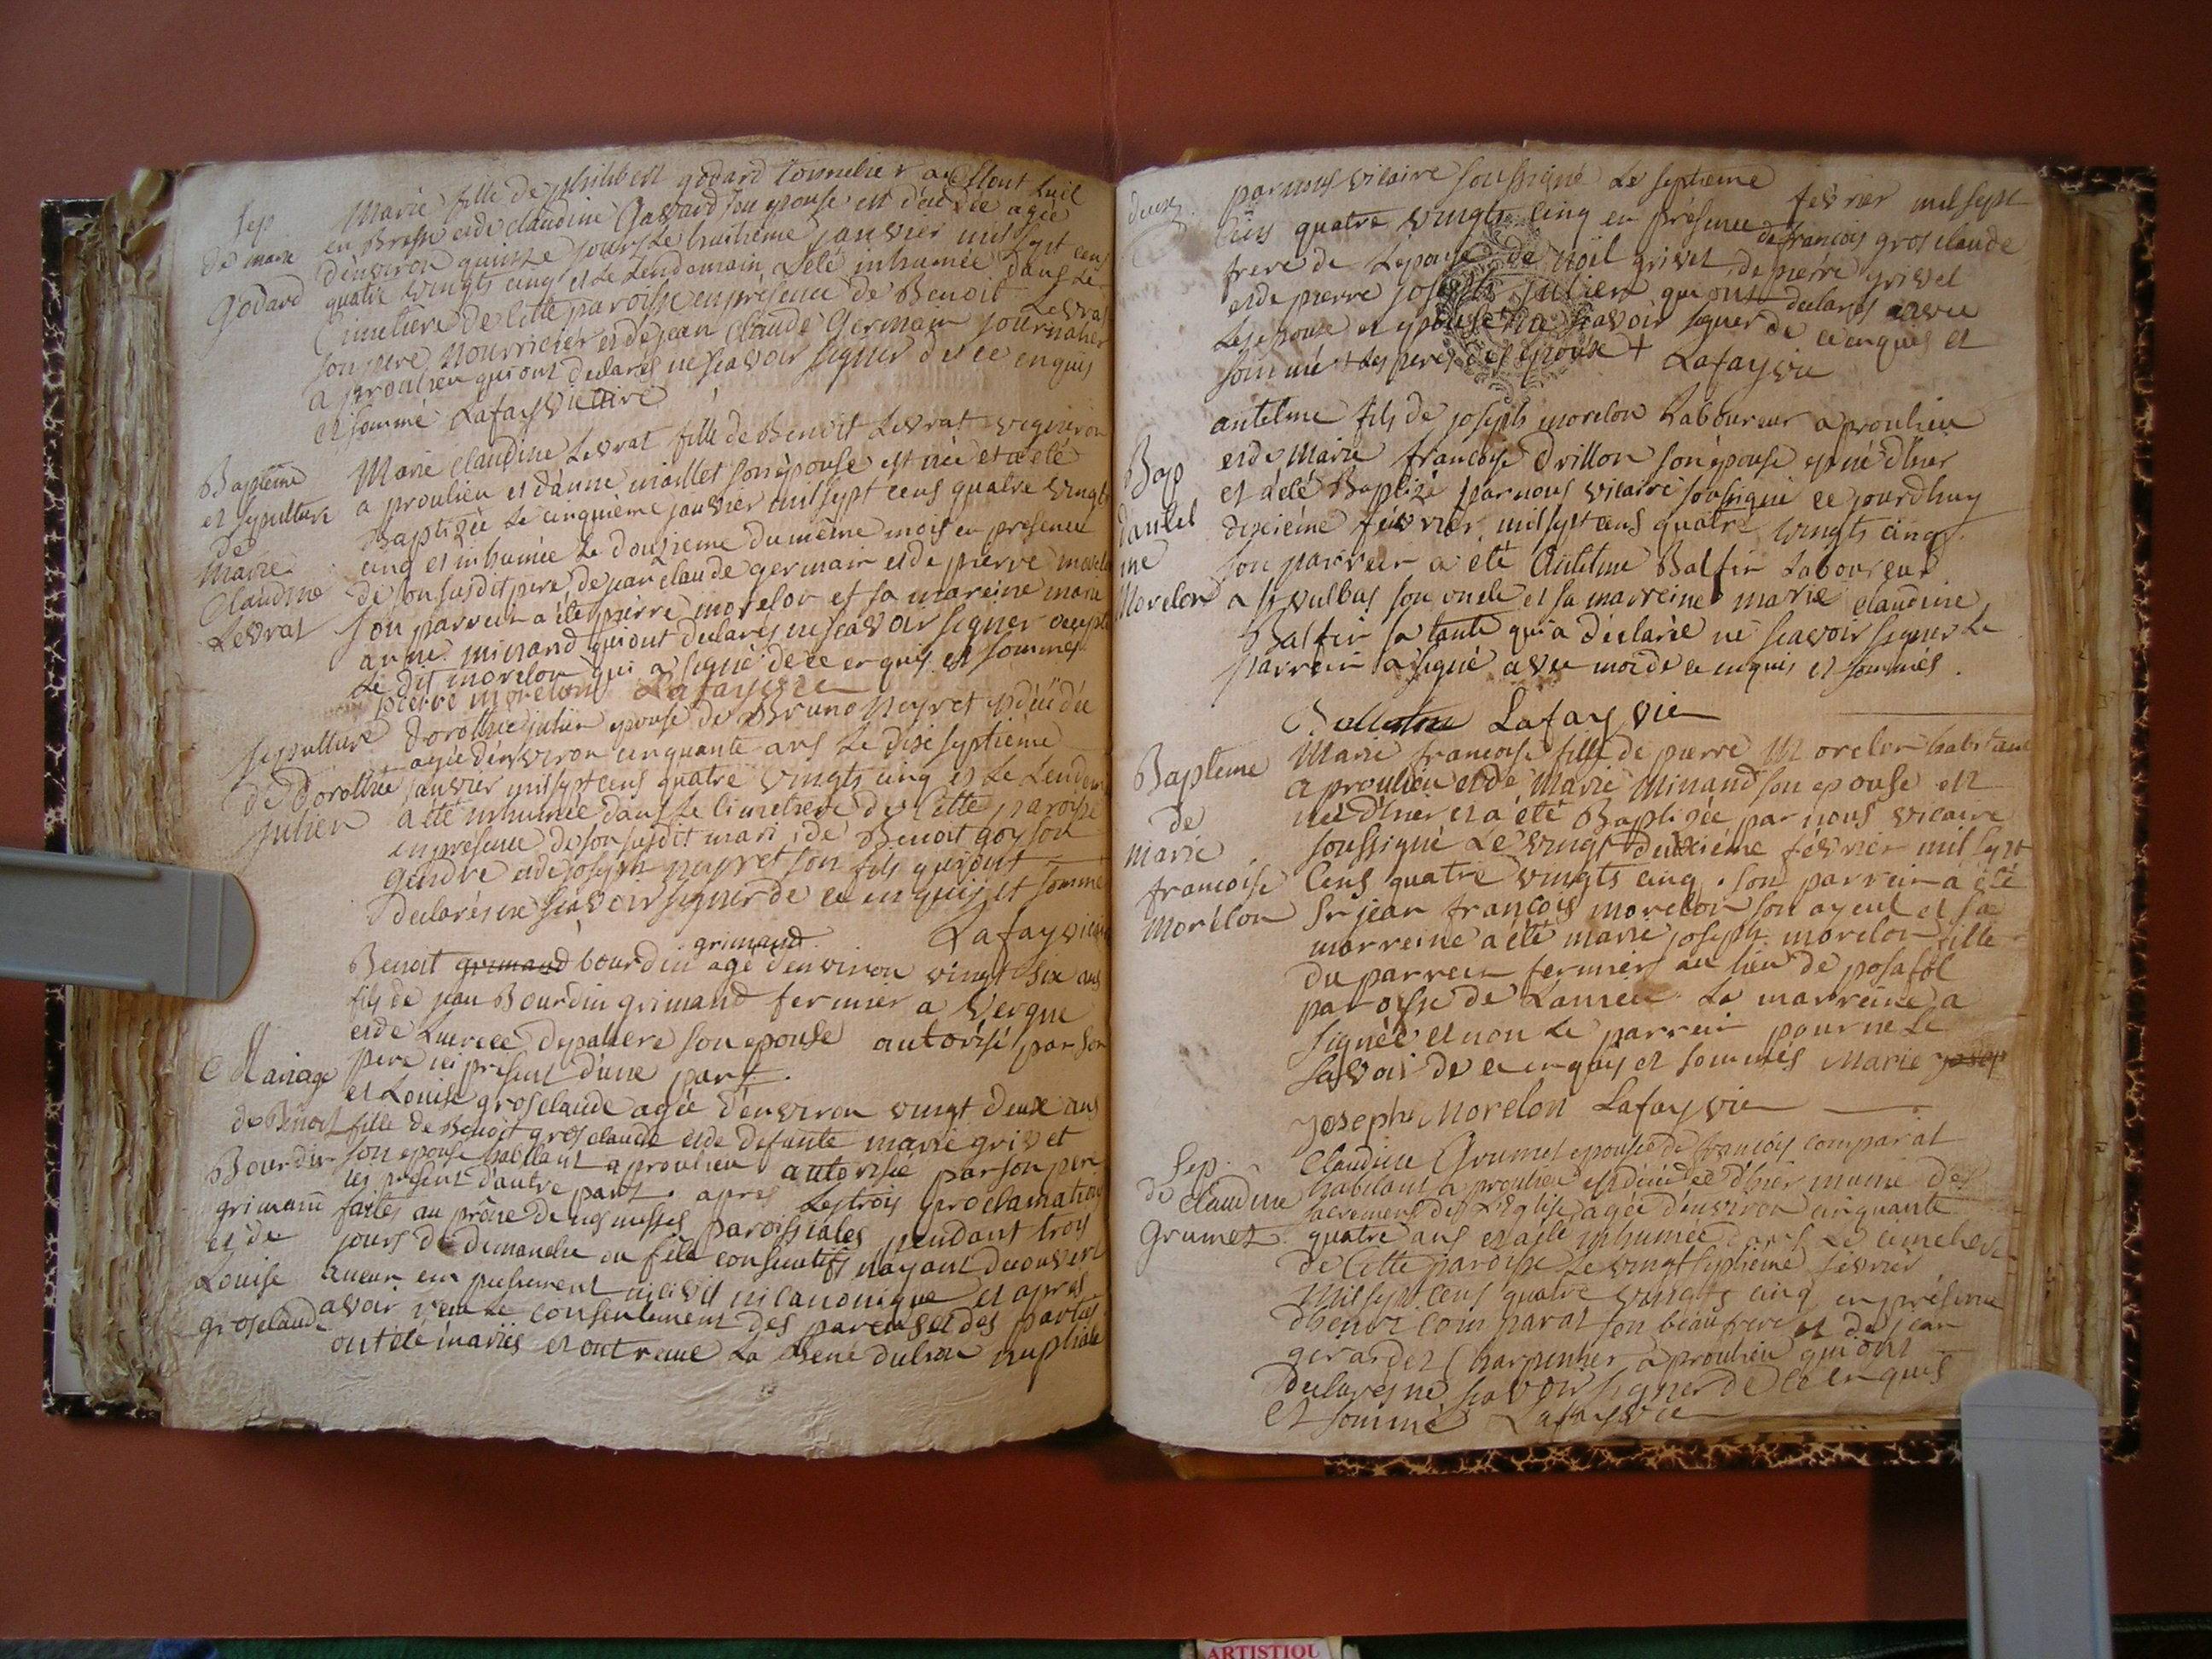 Sep
de marie
Godard
Marie fille de philibert godard tonnelier a
en Bresse et de claudine Gavard son epouse est décédée agée
d'environ quinze jours le huitieme janvier mil sept cens
quatre vingts cinq et le lendemain a été inhumée dans le
Cimetiere de cette paroisse en présence de Benoit Levrat
son pere nourricier et de jean claude Germain journalier
a proulieu qui ont declarés ne scavoir signer de ce enquis
et sommé Lafay vicaire
Baptême
et sepulture
de
Marie
Claudine
Levrat
Marie claudine Levrat fille de Benoit Levrat vigneron
a proulieu et d'anne maillet son épouse est née et a été
Baptizée le cinquième janvier mil sept cens quatre vingts
cinq et inhumée le douzieme du même mois en presence
de son susdit pere, de jean claude germain et de pierre morelon
son parrein a été pierre morelon et sa mareine marie
anne minand qui ont declarés ne scavoir signer excepté
le dit morelon qui a signé de ce enquis et sommés
pierre morelon Lafay vic
sepulture
de Dorothée
julien
Dorothée julien epouse de Bruno Neyret
agée d'environ cinquante ans le dix septième
janvier mil sept cens quatre vingts cinq et le lendemain
a été inhumée dans le cimetiere de cette paroisse
en presence de son susdit mari, de Benoit goyson
gendre et de joseph neyret son fils qui ont
declarés ne scavoir signer de ce enquis et sommé
Lafay vicaire
Mariage
de Benoit
Bourdin
grimand
et de
Louise
grosclaude
grimand
Benoit grimand bourdin agé d'environ vingt six ans
fils de jean Bourdin grimand fermier a Vergne
et de Lucrece depaliere son epouse autorisé par son
pere ici present d'une part.
et Louise grosclaude agée d'environ vingt deux ans
fille de Benoit grosclaude et de defunte marie grivet
son epouse habitant a proulieu autorisée par son pere
ici present d'autre part. apres les trois proclamations
faites au prône de nos messes paroissiales pendant trois
jours de dimanche ou fête consecutifs n'ayant decouvert
aucun empechement ni civil ni canonique et apres
avoir reçu le consentement des parens et des parties
ont été mariés et ont reçue la benediction nuptiale
par nous vicaire soussigné le septieme février mil sept
cens quatre vingts cinq en présence de françois grosclaude
frere de l'epouse de Noël grivet, de pierre grivet
et de pierre joseph julien qui ont declarés avec
les epoux et epouse ne scavoir signer de ce enquis et
sommé + les peres des epoux + Lafay vic
Bap
dantel
me
Morelon
antelme fils de joseph morelon Laboureur a proulieu
et de Marie françoise Drillon son épouse est né d'hier
et a été Baptizé par nous vicaire soussigné ce jourdhuy
dixieme février mil sept cens quatre vingts cinq.
son parrein a été Antelme Balfin Laboureur
a St vulbas son oncle et sa marreine marie claudine
Balfin sa tante qui a déclarée ne scavoir signer le
parrein a signé avec moi de ce enquis et sommés.
Lafay vic
Baptême
de
marie
francoise
Morélon
Marie francoise fille de pierre Morelon habitant
a proulieu et de Marie Minand son epouse est
née d'hier et a été Baptizée par nous vicaire
soussigné le vingt deuxiéme février mil sept
cens quatre vingts cinq. son parrein a été
Sr jean françois morelon son ayeul et sa
marreine a été marie joseph morelon fille
du parrein fermier au lieu de posafol
paroisse de Lanieu. La marreine a
signée et non le parrein pour ne le
scavoir de ce enquis et sommés Marie josep
Josephe Morelon Lafay vic
Sep.
de claudine
Grumet
Claudine Grumet epouse de françois comparat
habitant a proulieu est décédée d'hier munie des
sacremens de l'Eglise, agée d'environ cinquante
quatre ans et a été inhumée dans le cimetiere
de cette paroisse le vingt septieme février
mil sept cens quatre vingts cinq en présence
d'henri comparat son beau frere et de jean
girardet Charpentier a proulieu qui ont
declarés ne scavoir signer de ce enquis
et sommé Lafay vic
ARTISTIQU